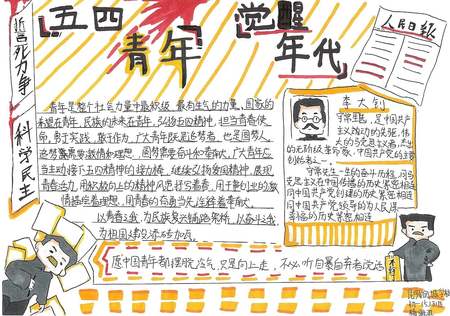 誓死力争
科学民主
五四
青年
觉醒
年代
人民日报
青年是整个社会力量中最积极、最有生气的力量，国家的
希望在青年，民族的未来在青年。弘扬五四精神，担当青春使
命，勇于实践，敢于作为。广大青年既是追梦者，也是圆梦人。
追梦需要激情和理想，圆梦需要奋斗和奉献，广大青年应
当主动接下五四精神的接力棒，继续发扬爱国精神，展现
青春活力，用积极向上的精神风貌抒写青春，用于创业的激
情描绘着理想，用青春的奋勇当先诠释着奉献。
以青春之我，为民族复兴铺路架桥，以奋斗之我
为祖国建设添砖加瓦。
李大钊
是中国共产
主义运动的先驱，伟
大的马克思主义者，杰出
的无产阶级革命家，中国共产党的主要
创始者之一。
守常先生一生的奋斗历程，同马
克思主义在中国传播的历史紧密相连
同中国共产党创建的历史紧密相连
同中国共产党领导的为人民谋
幸福的历史紧密相连
愿中国青年都摆脱冷气，只是向上走，不必听自暴自弃者流话